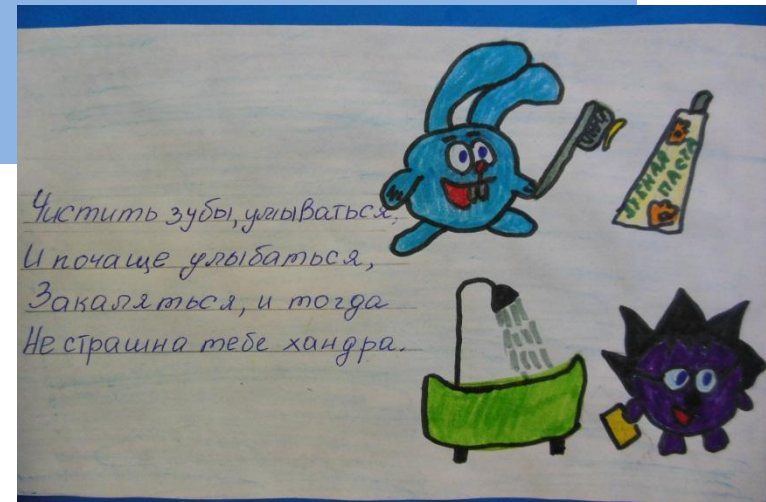 Чистить зубы, умываться,
И почаще улыбаться,
Закаляться, и тогда
Не страшна тебе хандра.
ЗУБНАЯ
ПАСТА